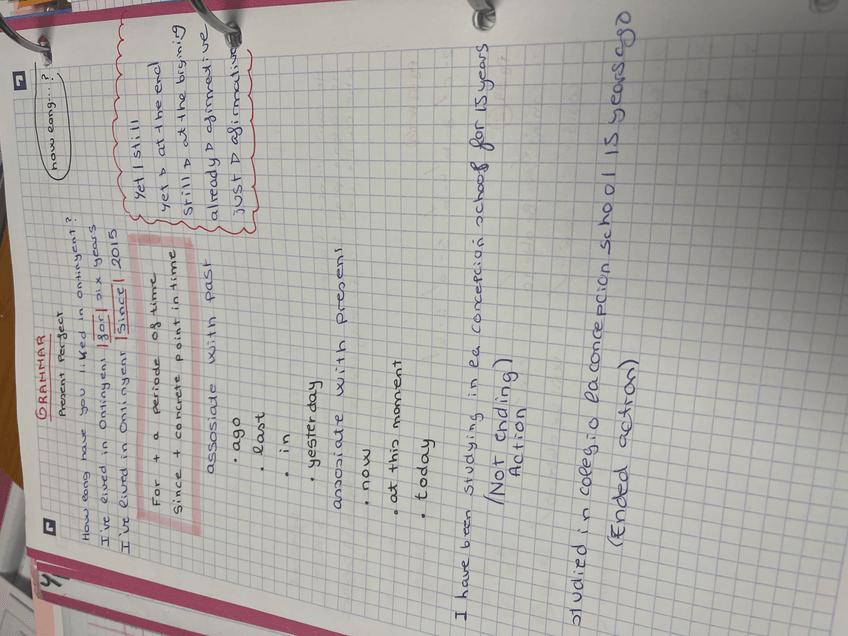 GRAMMAR
Present Perfect
how long...?
How long have you lived in Ontinyent?
I've lived in Ontinyent for six years
I've lived in Ontinyent since 2015
For + a periode of time
Since + concrete point in time
Yet // still
Yet → at the end
Still → at the begining
already → afirmative
just → afirmative
assosiate with past
· ago
· last
· in
· yesterday
assosiate with present
· now
· at this moment
· today
I have been studying in la concepcion school for 15 years
(Not ending)
Action
studied in colegio la concepcion school 15 years ago
(Ended action)